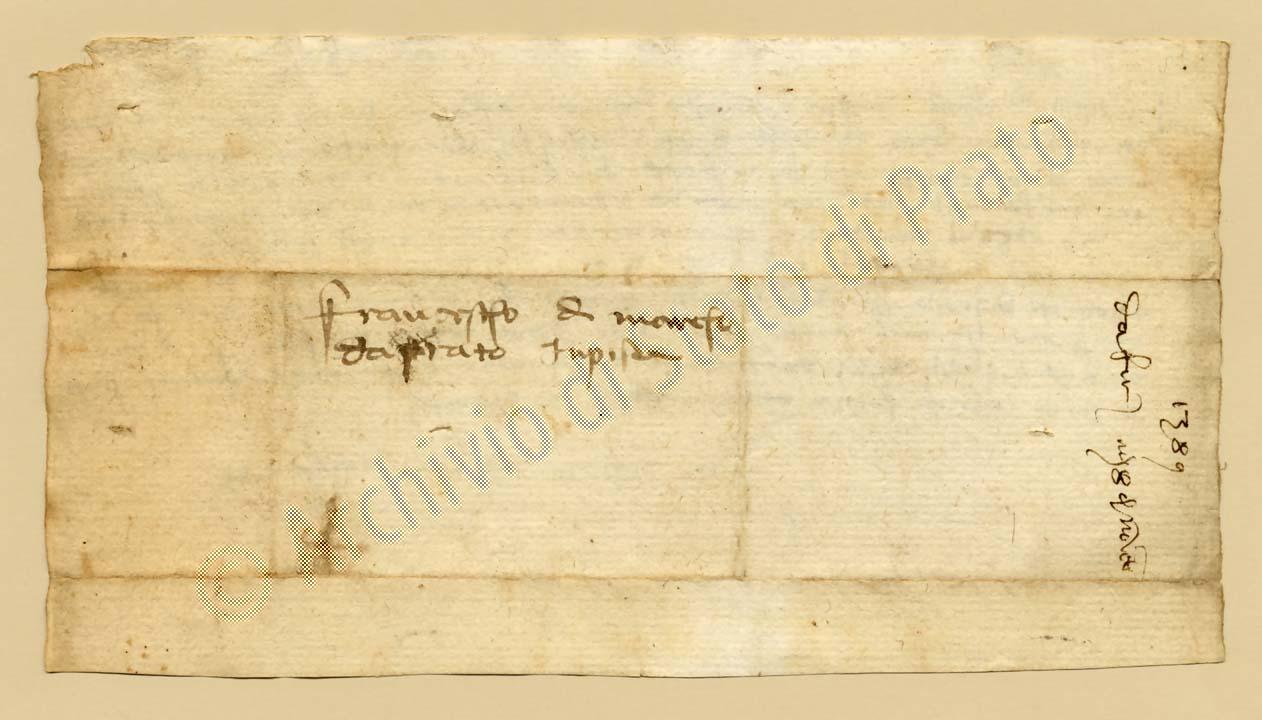 Franciescho di marcho
da prato in pisa
1389
da fir
© Archivio di Stato di Prato